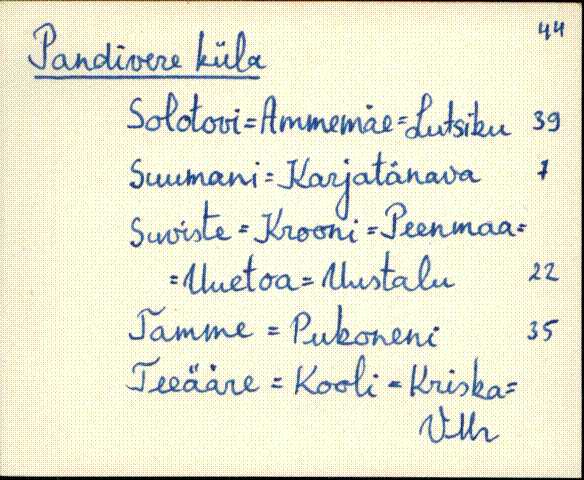 44
Pandivere küla
Solotovi=Ammemäe=Lutsiku 39
Suumani=Karjatänava 7
Suviste=Krooni=Peenmaa=
=Uuetoa=Uustalu 22
Tamme = Pukoneni 35
Teeääre = Kooli = Kriska=